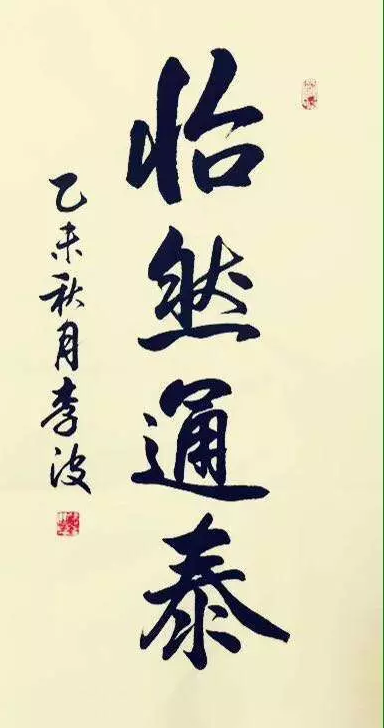 怡然通泰
乙未秋月李波